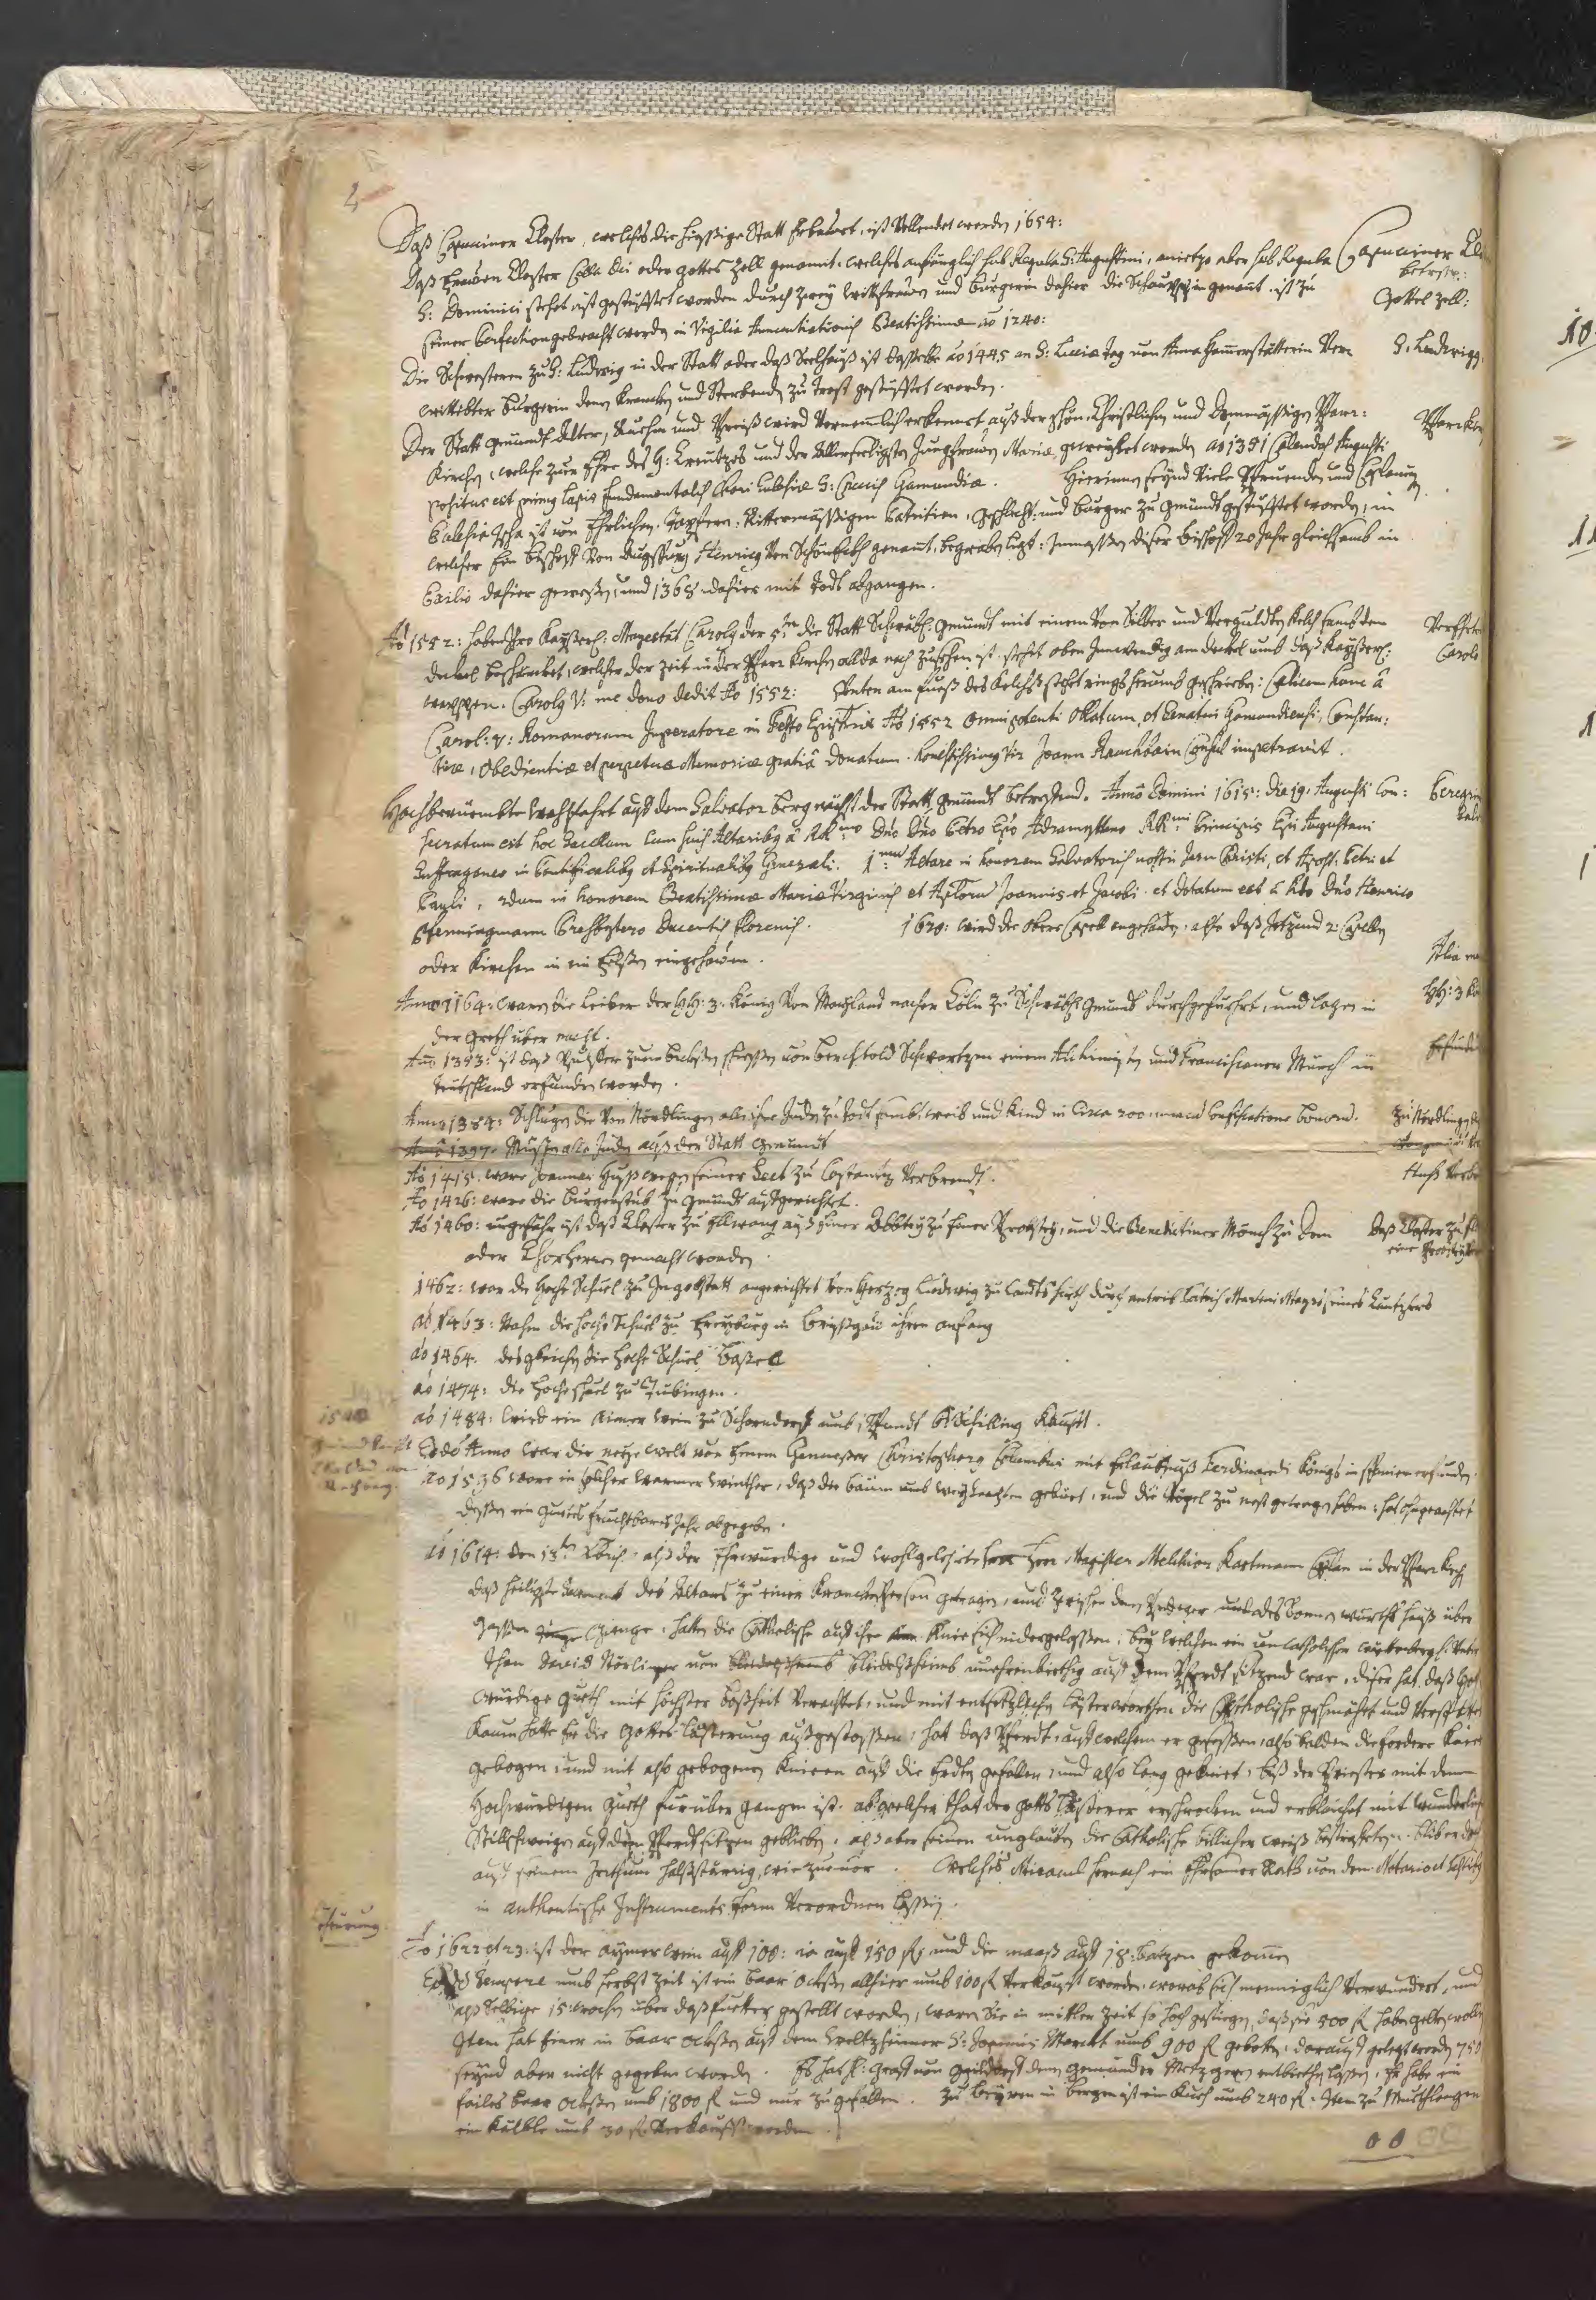 Daß Capuciner Closter, welches die hiessige Statt erbawet, ist Vollendet worden 1654:
Daß Frawen Closter Cella Dei oder gottes Zell genannt, welches anfänglich sub Regula S: Augustini, anietzo aber sub Regula
Capuciner Clo
betreffn:
S: Dominici stehet ist gestüfftet worden durch zwey Wittfrawen und burgerin dahier die Schauppin genant, ist zu
Gottes Zell:
seiner Perfection gebracht worden in Vigilia Annuntiationis Beatissimae ao 1240:
Die Schwesteren zu S: Ludwig in der Statt oder daß Seelhauß ist dasselbe ao 1445 an S: Luciae tag von Anna Hammerstätterin Ver
S: Ludwigs
wittibter burgerin denen krancken und Sterbenden zu trost gestüfftet worden.
Der Statt gmündt Alter, und Preiß wird Vernemlich erkennet auß der schön, Christlichen und Pfarr:
Pfarrkir
Kirchen, welche zur Ehre des H: Creutzes und der Allerseeligsten Jungfrawen Mariae geweyhet worden ao 1351 Calendis Augusti
positus est primus lapis fundamentalis Chori Eclesiae S: Crucis Gamundiae. Hierinnen seynd Viele Pfruenden und Caplaney
Eclesia ist von Ehrlichen, Tapfern, Rittermässigen Patritien, geschlecht: und burger zu gmündt gestüfftet worden, in
welcher ein bischoff Von Augspurg Henricus Von Schönegkh genannt, begraben ligt: Inmassen diser bischoff 20 Jahr gleichsamb in
Exilio dahier gewessen, und 1368 dahier mit todt abgangen.
Ao 1552: haben Ihro Kayserl: Mayestät Carolus der 5te die Statt Schwäb: gmündt mit einem Von Silber und Verguldten Kelch sambt dem
Verehrte
deckel beschencket, welcher der Zeit in der Pfarr Kirchen allda noch zusehen ist, stehet oben Innwendig am deckel umb daß Kayserl:
Caroli
wappen. Carolus V: me dono dedit Ao 1552: Unten am fueß des Kelchs stehet rings herumb geschrieben: Calicem hunc à
Carol: V: Romanorum Imperatore in Festo Ao 1552 Omnipotenti Oblatum, et Senatui Gamundiensi, Constan:
tiae, Obedientiae et perpetuae Memoriae gratiâ donatum. honestissimus Vir Joann Rauchbain Consul impetravit.
Hochberüembte Wahlfahrt auff dem Salvator berg nächst der Statt gmündt betreffend. Anno Domini 1618: die 19: Augusti Con:
Peregrin
Salv
secratum est hoc Sacellum Cum suis Altaribus à RRmo Dno Dno Petro Epo Adramytteno RRmi Principis Epi Augustani
Suffraganeo in Pontificalibus et Spiritualibus Generali. 1mum Altare in honorem Salvatoris nostri Jesu Christi, et Apost: Petri et
Pauli, 2dum in honorem Beatissimae Mariae Virginis et Aplorum Joannis et Jacobi. et dotatum est à Rdo Dno Henrico
Pfenningmann Presbytero Ducentis Florenis. 1620: wird die obere Capell angefangen, also daß Jetzund 2: Capellen
oder Kirchen in ein felsen eingehawen.
Alia
Anno 1164: waren die leiber der HH: 3: König Von Mayland nacher Cöln zu Schwäb: Gmündt durchgeführt, und lagen in
HH: 3 Kö
der Greth über nacht.
Anno 1393: ist daß Pulffer zum bichsen schiessen von Berchtold Schwartzen einem Alchimisten und Franciscaner Münch in
Erfindu
Teutschland erfunden worden.
Anno 1384: Schlugen die Von Nördlingen alle ihre Juden zu todt sambt weib und kind in Circa 200: una cum confiscatione bonorum.
Zu Nördlingen die
Anno 1397. Müssen alle Juden auß der Statt Gmündt
Ao 1415. ware Joannes Huß wegen seiner Sect zu Costantz Verbrendt.
Huß Verbr
Ao 1426: ware die burgerstub zu gmündt auffgerichtet.
Ao 1460: ungefähr ist daß Closter zu Ellwang auß einer Abbtey zu einer Probstey, und die Benedictiner Mönch zu dom
Daß Closter zu El
oder Chorherren gemacht worden
eine Probstey
1462: war die hohe Schuel zu Ingolstatt angerichtet Von Hertzog Ludwig zu Landtshuth durch antrib Martini Mayrs seines Cantzlers
ao 1463: Nahm die hohe Schuel zu Freyburg in breyßgaw ihren anfang
ao 1464. desgleichen die hohe Schuel Bassel
ao 1474: die hoche schuel zu Tubingen.
ao 1484: wird ein Aimer Wein zu Schorndorff umb 1 Pfundt 6 Schilling Kaufft.
Eodem Anno war die newe welt von Einem Genueser Christophoro Columbus mit Erlaubnuß Ferdinandi Königs in spanien erfunden.
ao 1536 ware in solcher warmer winther, daß die bäum umb weyhnachten geblüet, und die Vögel zu nest getragen haben: hat ohngeachtet
dessen ein gutes fruchtbares Jahr abgegeben.
ao 1614: den 13ten Xbris, alß der Ehrwürdige und wohlgelehrte Herr Magister Melchior Kastmann Caplan in der Pfarrkirch
daß heiligste Sacrament des Altars zu einer krancken Persson getragen, und zwischen dem Prediger und des Sonnen würths hauß über
Gassen gienge: haben die Catholische auff ihre Knie sich nidergelassen: bey welchen ein uncatholischer Würtenberg:
than David Nörlinger von bleidelßheimb unehrenbiethig auff dem Pferdt sitzend war, diser hat daß Hoch
würdige guett mit höchster boßheit Verachtet, und mit entsetzlichen lästerworthen die Catholische geschmähet und Verspottet
Kaum hatte Er die Gottes lästerung außgestossen: hat daß Pferdt, auff welchem er gesessen, also balden die fordere Knie
gebogen, und mit also gebogenen Knieen auff die Erden gefallen, und also lang gekniet, biß der Priester mit dem
Hochwürdigen guett fürüber gangen ist. ab welcher that der gotts läßterer erschrocken und erbleichet mit
Stillschweigen auff dem Pferdt sitzen gebliben. alß aber seinen unglauben die Catholische billicher weiß bestrafften. blibe er doch
auff seinem Irrthum halßstärrig, wie zuvor. Welches Miracul hernach ein Ehrsamer Rath von dem Notario
in authentische Instruments form Verordnen lassen.
Theurung.
Ao 1622 et 23: ist der aymer wein auff 100: ia auff 150 fl: und die maaß auff 18: batzen gekommen
Eodem tempore umb herbst Zeit ist ein baar ochssen allhier umb 100 fl Verkaufft worden, worab sich menniglich Verwundert, und
alß Selbige 15: wochen über daß futter gestellt worden, waren Sie in mittler Zeit so hoch gestiegen, daß sie 500 fl haben gelten wollen
Item hat Einer in baar ochssen auff dem Weltzheimer S: Joannis Marckt umb 900 fl gebotten. darauff gelegt worden 750
seynd aber nicht gegeben worden. Es hat H: Graff von gaildorff den gemünder Metzgern entbiethen lassen, Er habe ein
failes baar ochssen umb 1800 fl und nur zu gefallen. Zu beyren in bergen ist ein Kuch umb 240 fl. Item zu Muthlangen
ein Kälble umb 30 fl. Verkaufft worden.